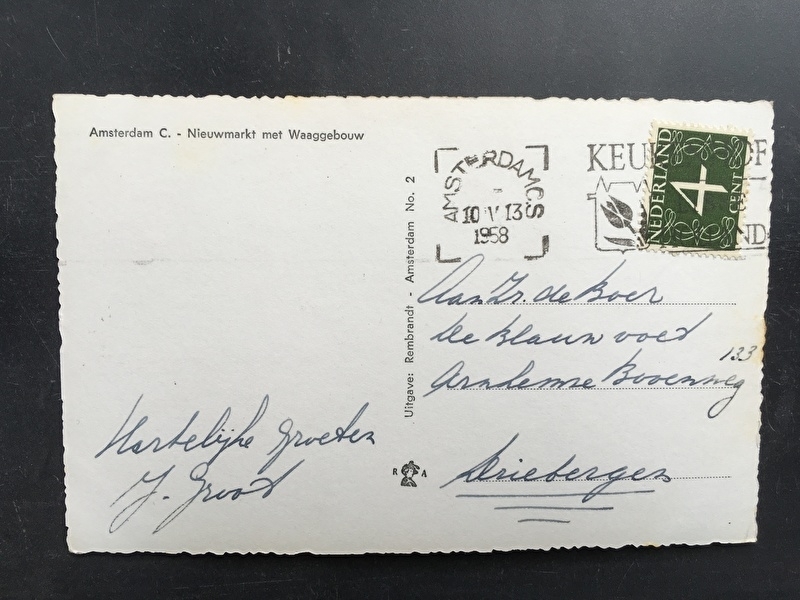 Amsterdam C. - Nieuwmarkt met Waaggebouw
Uitgave: Rembrandt - Amsterdam No. 2
AMSTERDAM C.S.
10 V 13
1958
KEUK OF
ND
NEDERLAND
4
CENT
Aan Zr. de Boer
De Klaun voet
Arnhemse Bovenweg 133
Driebergen
Hartelijke Groeten
J. Groot
R A